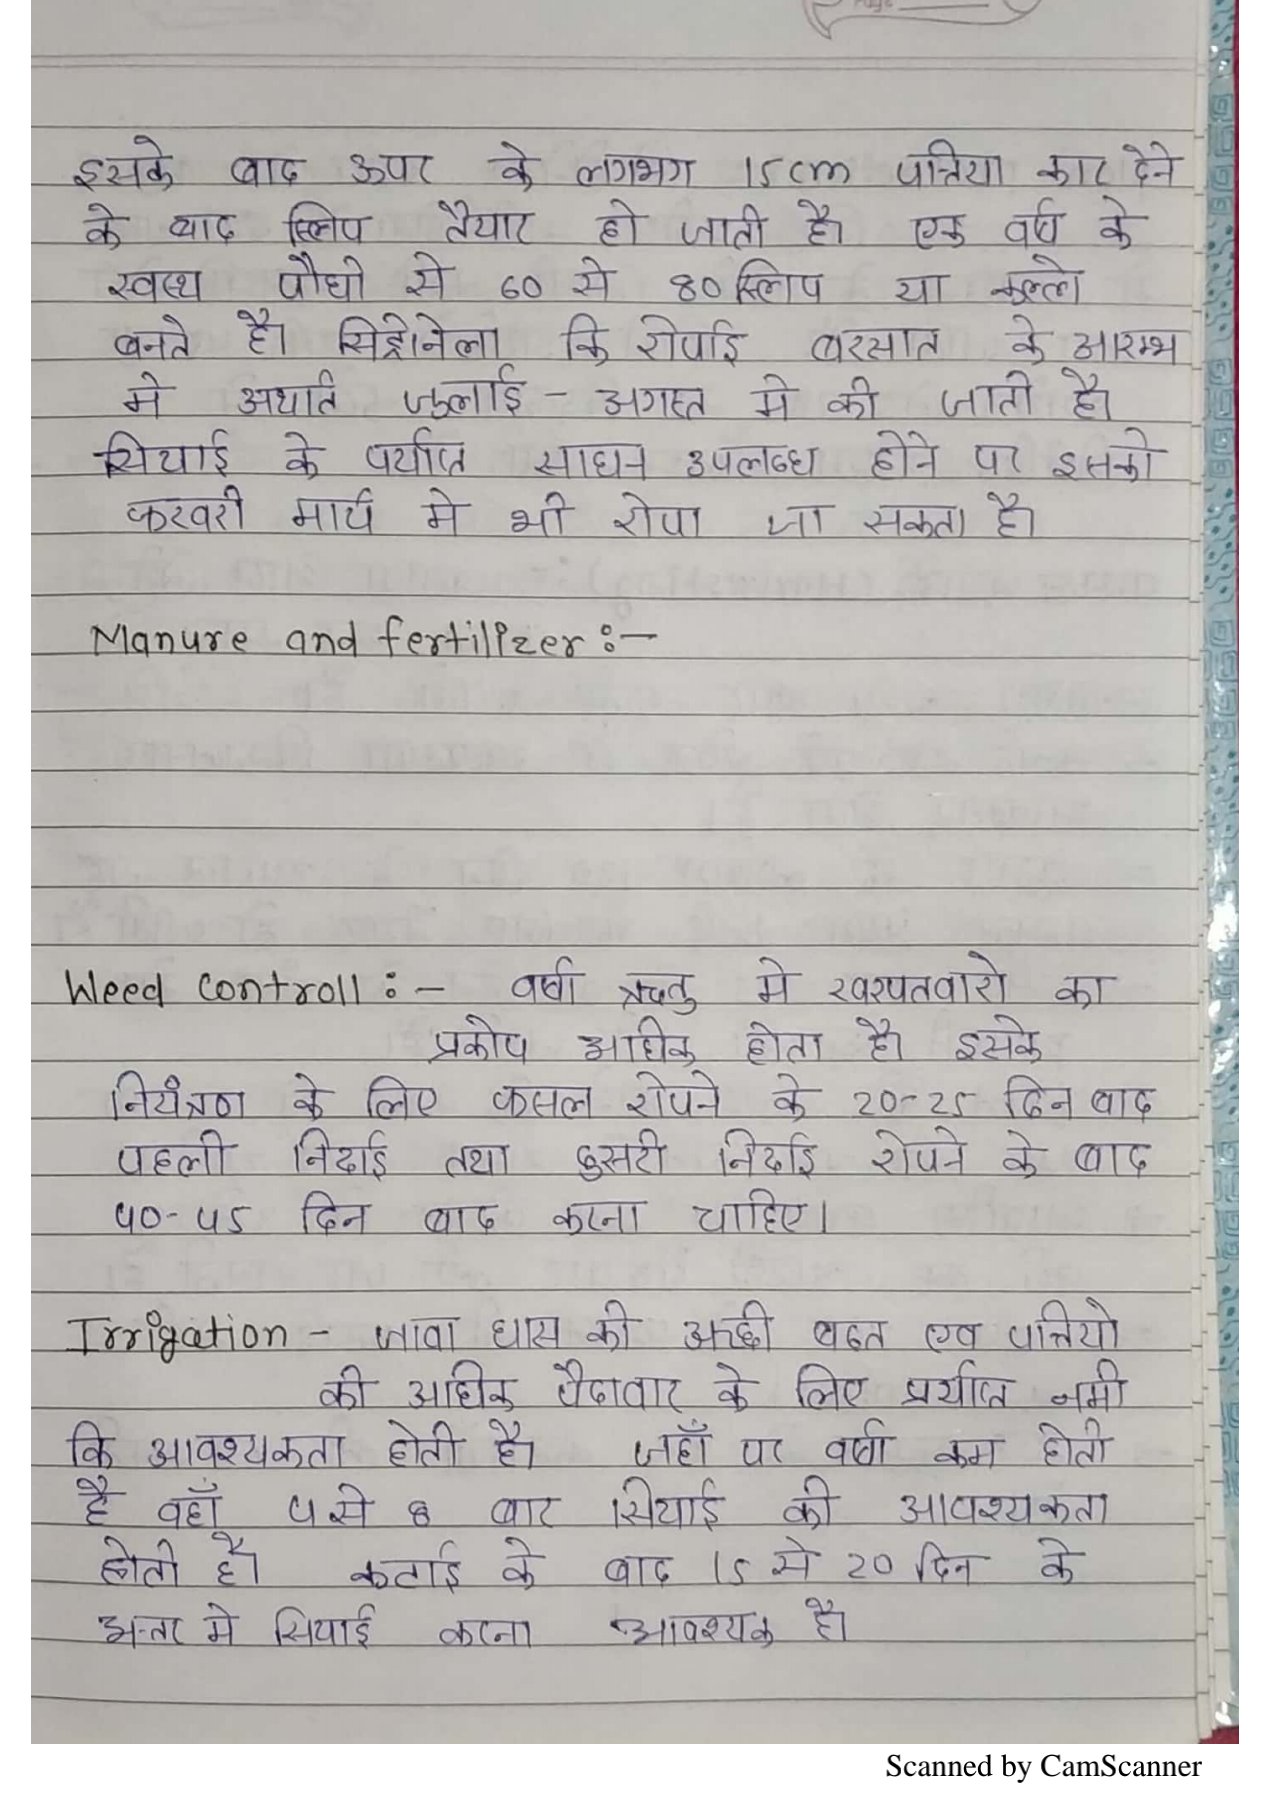 Page
इसके बाद ऊपर के लगभग 15cm पत्तिया काट देने
के बाद स्लिप तैयार हो जाती है। एक वर्ष के
स्वस्थ पौधो से 60 से 80 स्लिप या कल्ले
बनते है। सिट्रोनेला कि रोपाई बरसात के आरम्भ
मे अर्थात जुलाई - अगस्त मे की जाती है।
सिचाई के पर्याप्त साधन उपलब्ध होने पर इसको
फरवरी मार्च मे भी रोपा जा सकता है।
Manure and fertilizer :-
Weed Controll :- वर्षा ऋतु मे खरपतवारो का
प्रकोप अधिक होता है। इसके
नियंत्रण के लिए फसल रोपने के 20-25 दिन बाद
पहली निदाई तथा दुसरी निदाई रोपने के बाद
40-45 दिन बाद करना चाहिए।
Irrigation - जावा घास की अच्छी बढत एव पत्तियो
की अधिक पैदावार के लिए प्रर्याप्त नमी
कि आवश्यकता होती है। जहाँ पर वर्षा कम होती
है वहाँ 4 से 8 बार सिचाई की आवश्यकता
होती है। कटाई के बाद 15 से 20 दिन के
अन्तर मे सिचाई करना आवश्यक है।
Scanned by CamScanner